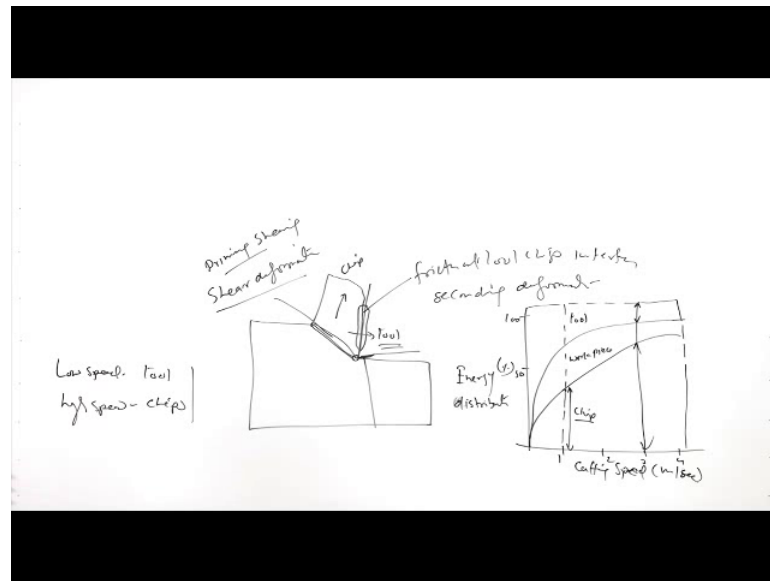 Priming Shearing
Shear deformatn
chip
frictional tool chip interfac
secondiing deformatn
tool
Low speed - tool
high speed - chips
100
tool
workpiece
Energy (%) 50
distribut
chip
1 2 3 4
Cutting Speed (m/sec)